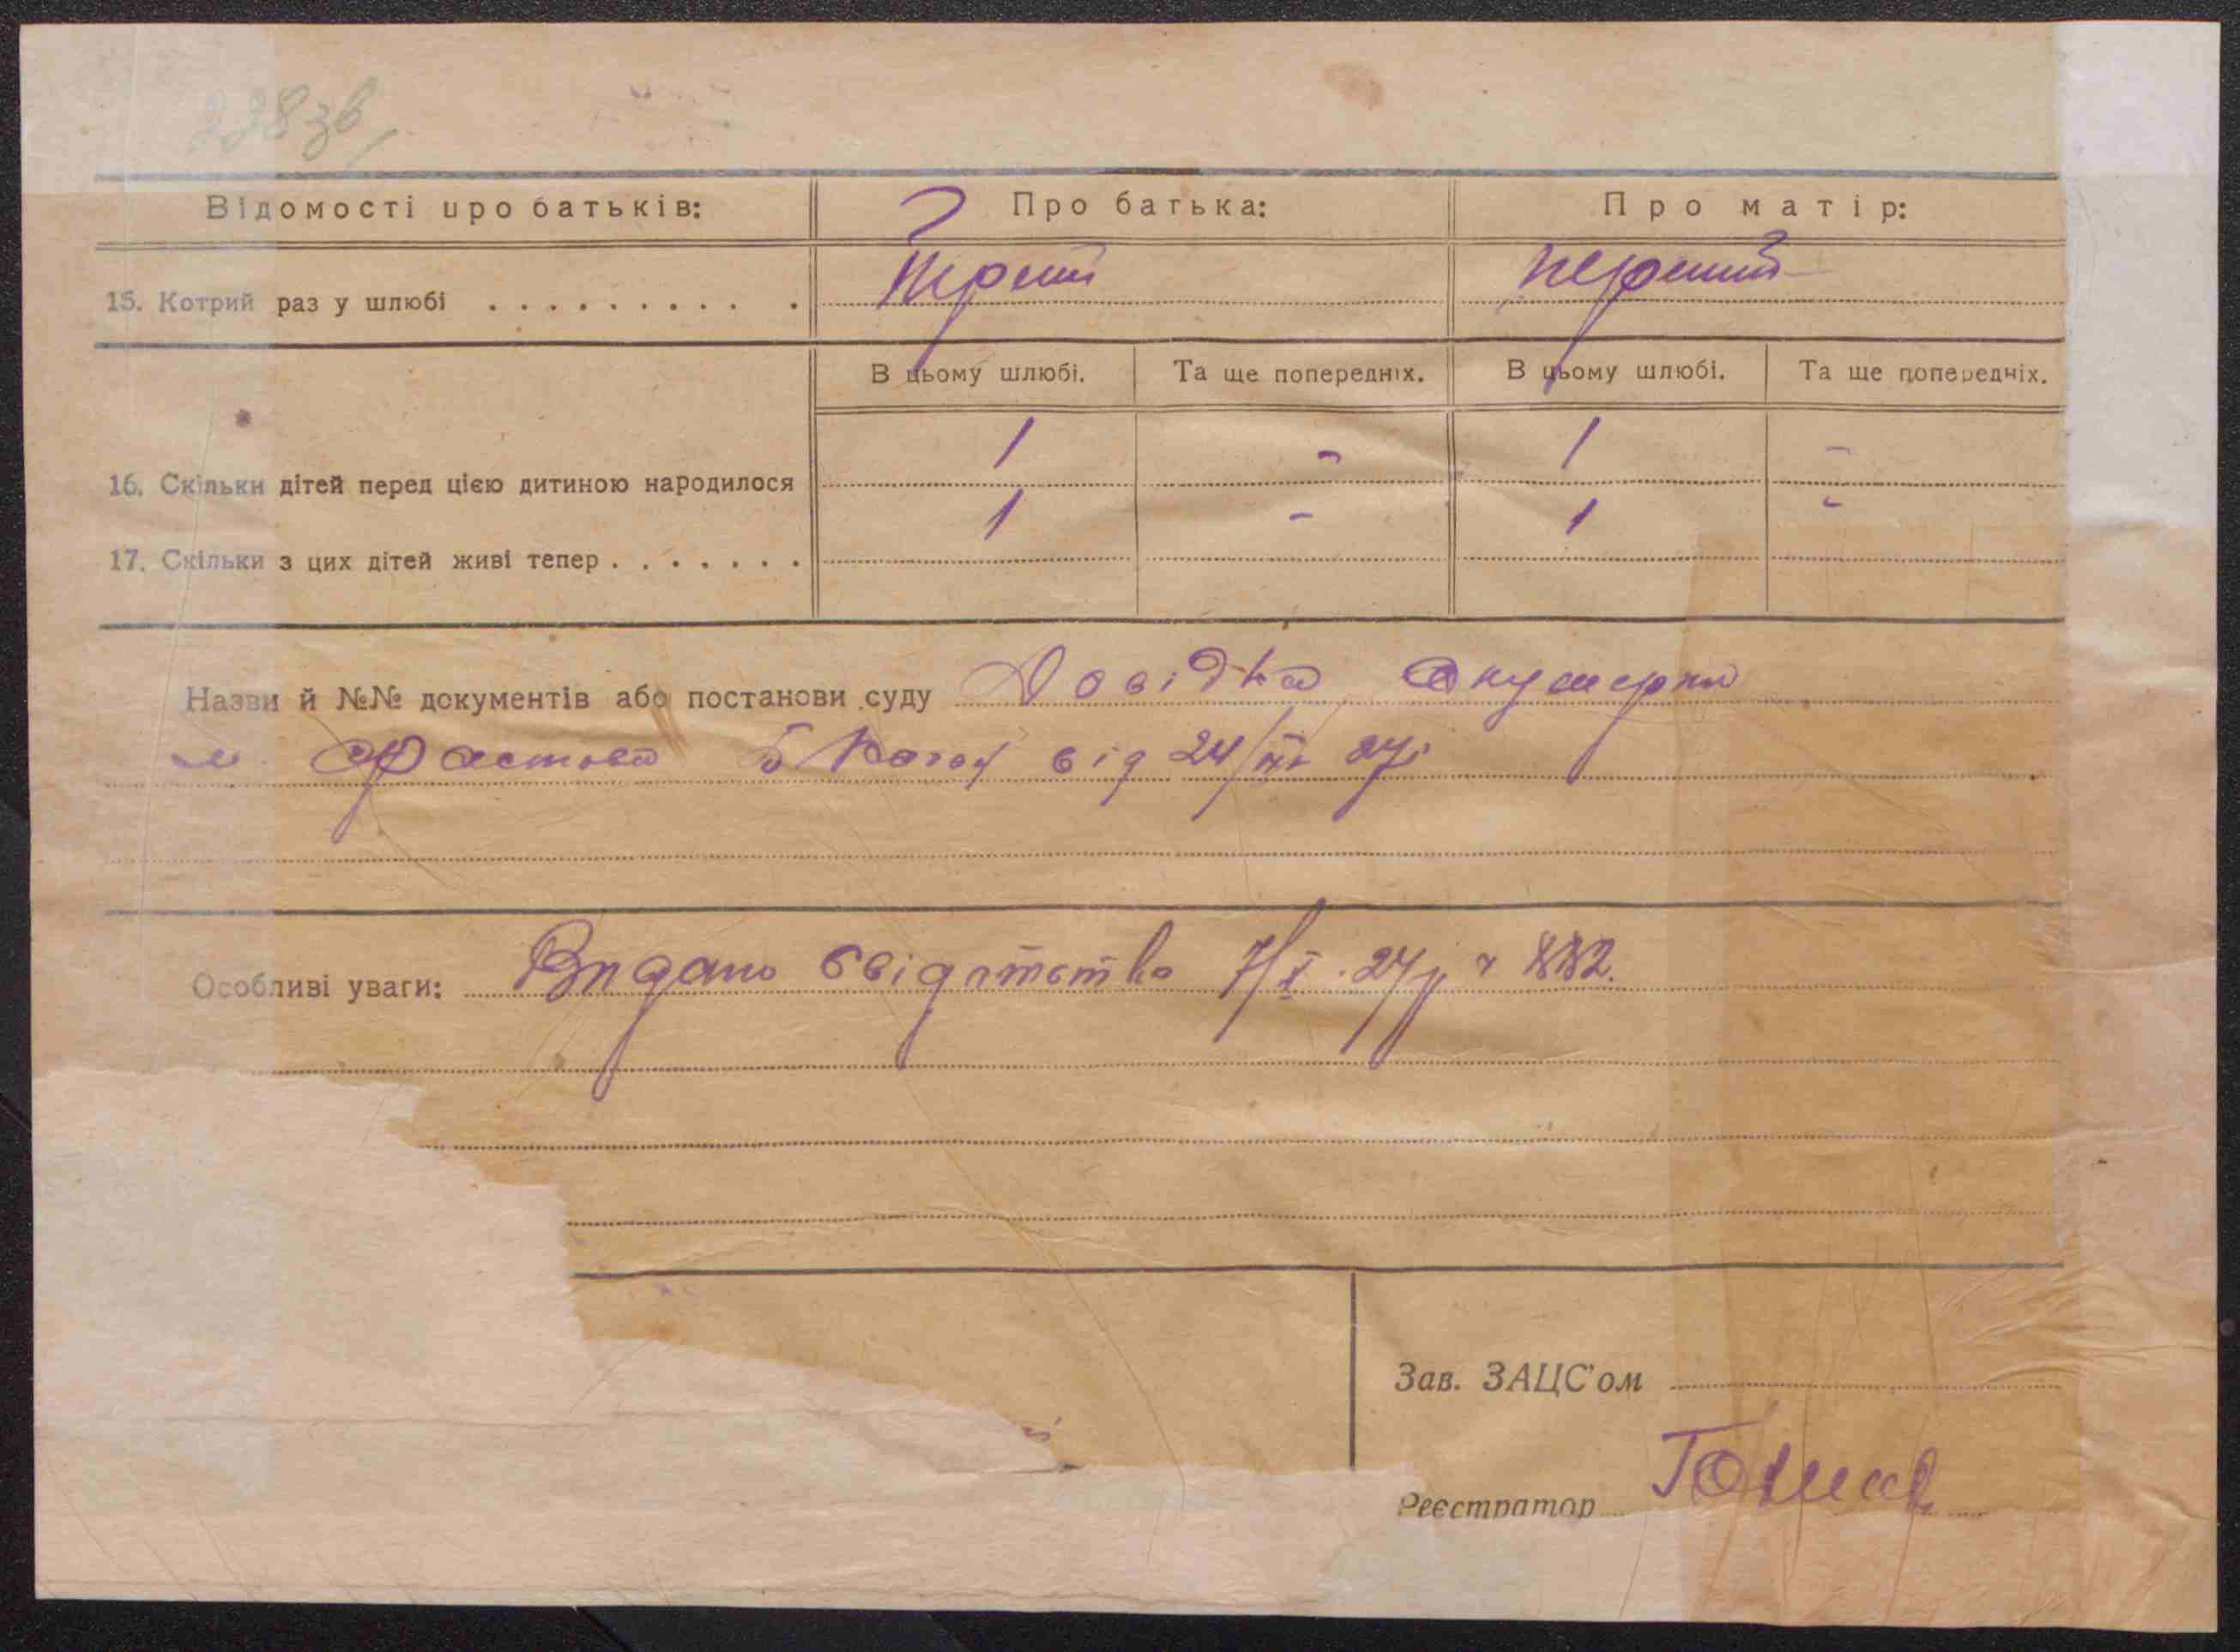 228 зв
Відомості про батьків: Про батька: Про матір:
15. Котрий раз у шлюбі . . . . . . . . . . перший
В цьому шлюбі. Та ще попередніх. В цьому шлюбі. Та ще попередніх.
16. Скільки дітей перед цією дитиною народилося 1 - 1 -
17. Скільки з цих дітей живі тепер . . . . . . . 1 - 1 -
Назви й №№ документів або постанови суду Довідка акушерки
м. Фастова від 24/
Особливі уваги: Видано свідотство 7/X 27р ч 882.
Зав. ЗАЦС'ом
Реєстратор